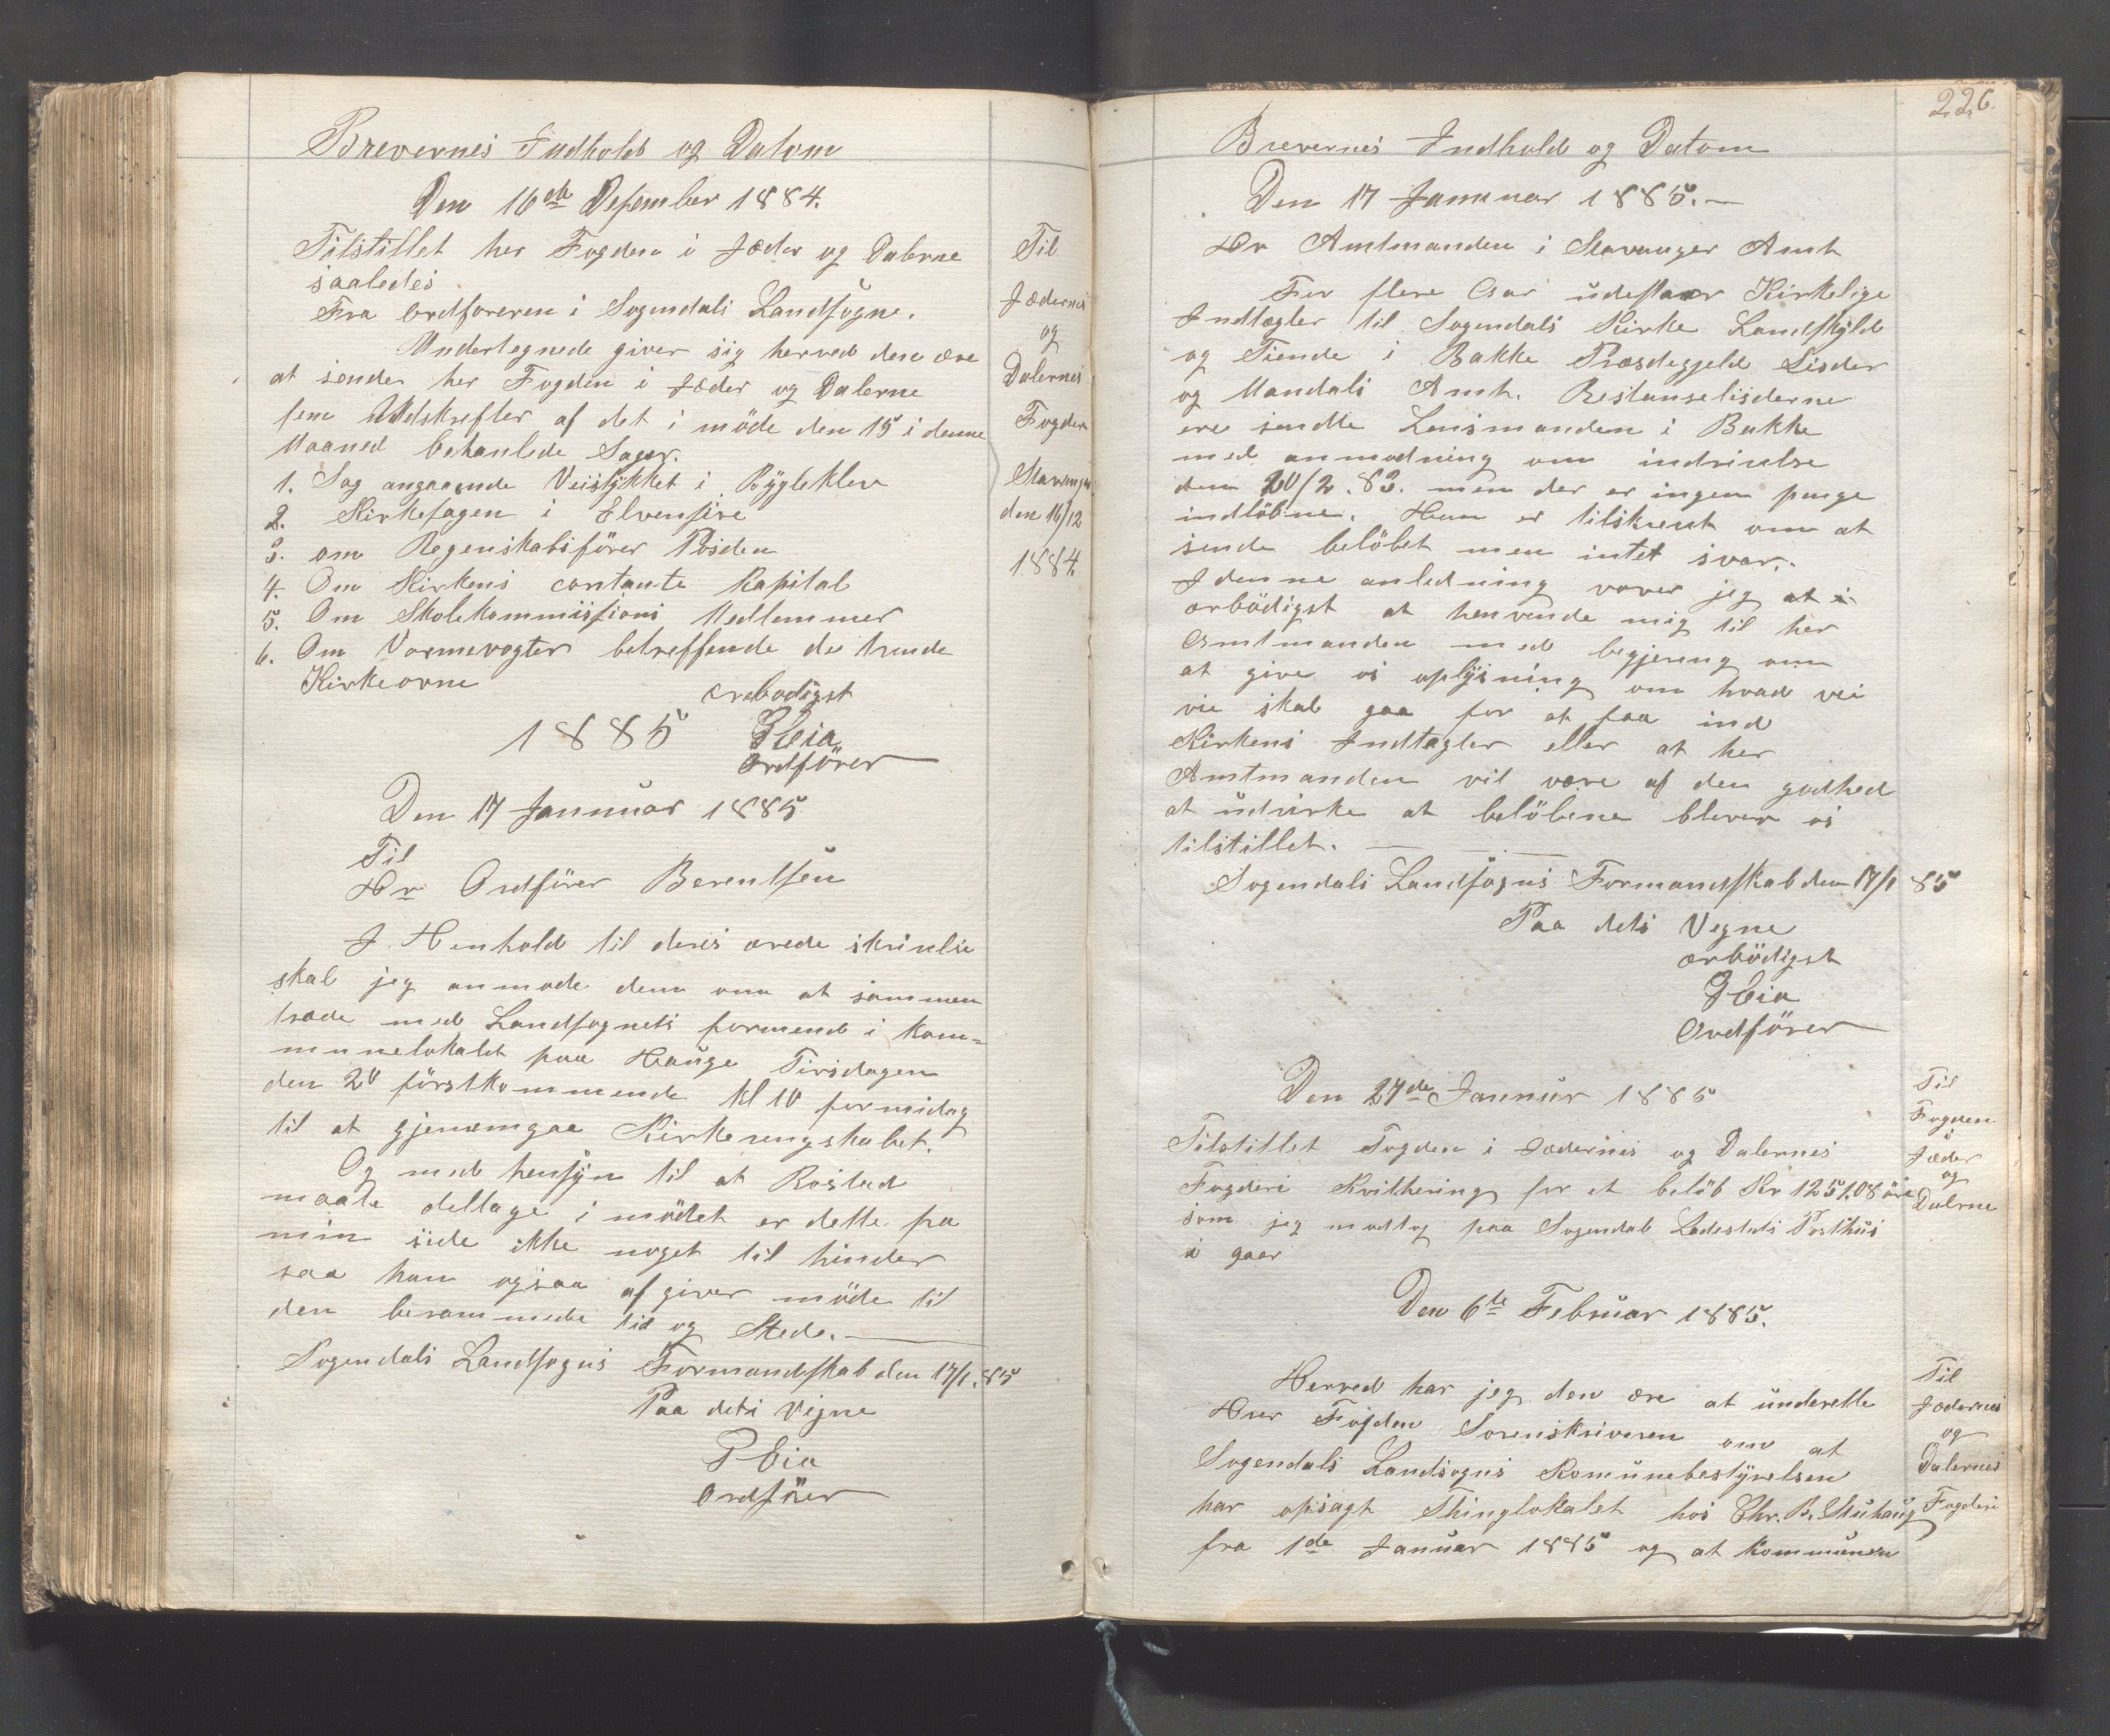 Brevernes Indhold og Datom
Den 16de Desember 1884.
Tilstillet her Fogden i Jæder og Dalerne
saaledes
Fra ordføreren i Sogndals Landsogn.
Undertegnede giver sig herved den ære
at sende her Fogden i Jæder og Dalerne
fem Udskrefter af det i möde den 15 i denne
Maaned behanlede Sager.
1. Sag angaaende Veistykket i Rygleklev
2. Kirkesagen i
3. om Regenskabsförer Rosden
4. Om Kirkens contante Kapital
5. Om Skolekommissions Medlemmer
6. Om Varmevogter betreffende de tvende
Kirkeovne
ærbødigst
1885 P Eia
Ordförer
Til
Jædernes
og
Dalernes
Fogder
Stavanger
den 16/12
1884.
Den 17 Januuar 1885
Til
Hr Ordförer Berentsen
I Henhold til deres ærede skrivelse
skal jeg anmode dem om at sammen
træde med Landsognets formend i kom=
munelokalet paa Hauge Tirsdagen
den 20 förstkommende kl 10 formidag
til at gjenemgaa Kirkerengskabet.
Og med hensyn til at Rostad
maate deltage i mödet er dette fra
min side ikke noget til hinder
saa han ogsaa afgiver möde til
den berammede tid og Stede.
Sogendals Landsogns Formandskab den 17/1.85
Paa dets Vegne
P Eia
Ordförer
226.
Brevernes Indhold og Datom
Den 17 Januuar 1885.
Hr Amtmanden i Stavanger Amt
For flere Aar udestaar Kirkelige
Indtægter til Sogendals Kirke Landskyld
og Tiende i Bakke Præsdegjeld Lister
og Mandals Amt. Restanselisderne
ere sendte Lensmanden i Bakke
med anmodning om indrivelse
den 20/2.83. men der er ingen penge
indlöbne. Han er tilskrevet om at
sende belöbet men intet svar.
I denne anledning vover jeg at i
ærbödigst at henvende mig til her
Amtmanden med begjering om
at give os oplysning om hvad vei
vie skal gaa for at faa ind
Kirkens Indtægter eller at her
Amtmanden vil være af den godhed
at udvirke at belöbene blever os
tilstillet.
Sogendals Landsogns Formandskab den 17/1 85
Paa dets Vegne
ærbödigst
P Eia
Ordförer
Den 27de Januur 1885
Tilstillet Fogden i Jædernes og Dalernes
Fogderi Kvithering for et belöb Kr 1251.08 öre
som jeg modtog paa Sogendal Ladesteds Posthus
i gaar
Til
Fogden
i
Jæder
og
Dalrne
Den 6te Februar 1885.
Herved har jeg den ære at underette
Herr Fogden Sorenskriveren om at
Sogendals Landsogns Komunebestyrelsen
har opsagt Thinglokalet hos Chr. B. Stuhaug
fra 1de Januar 1885 og at kommunen
Til
Jædernes
og
Dalernes
Fogderi